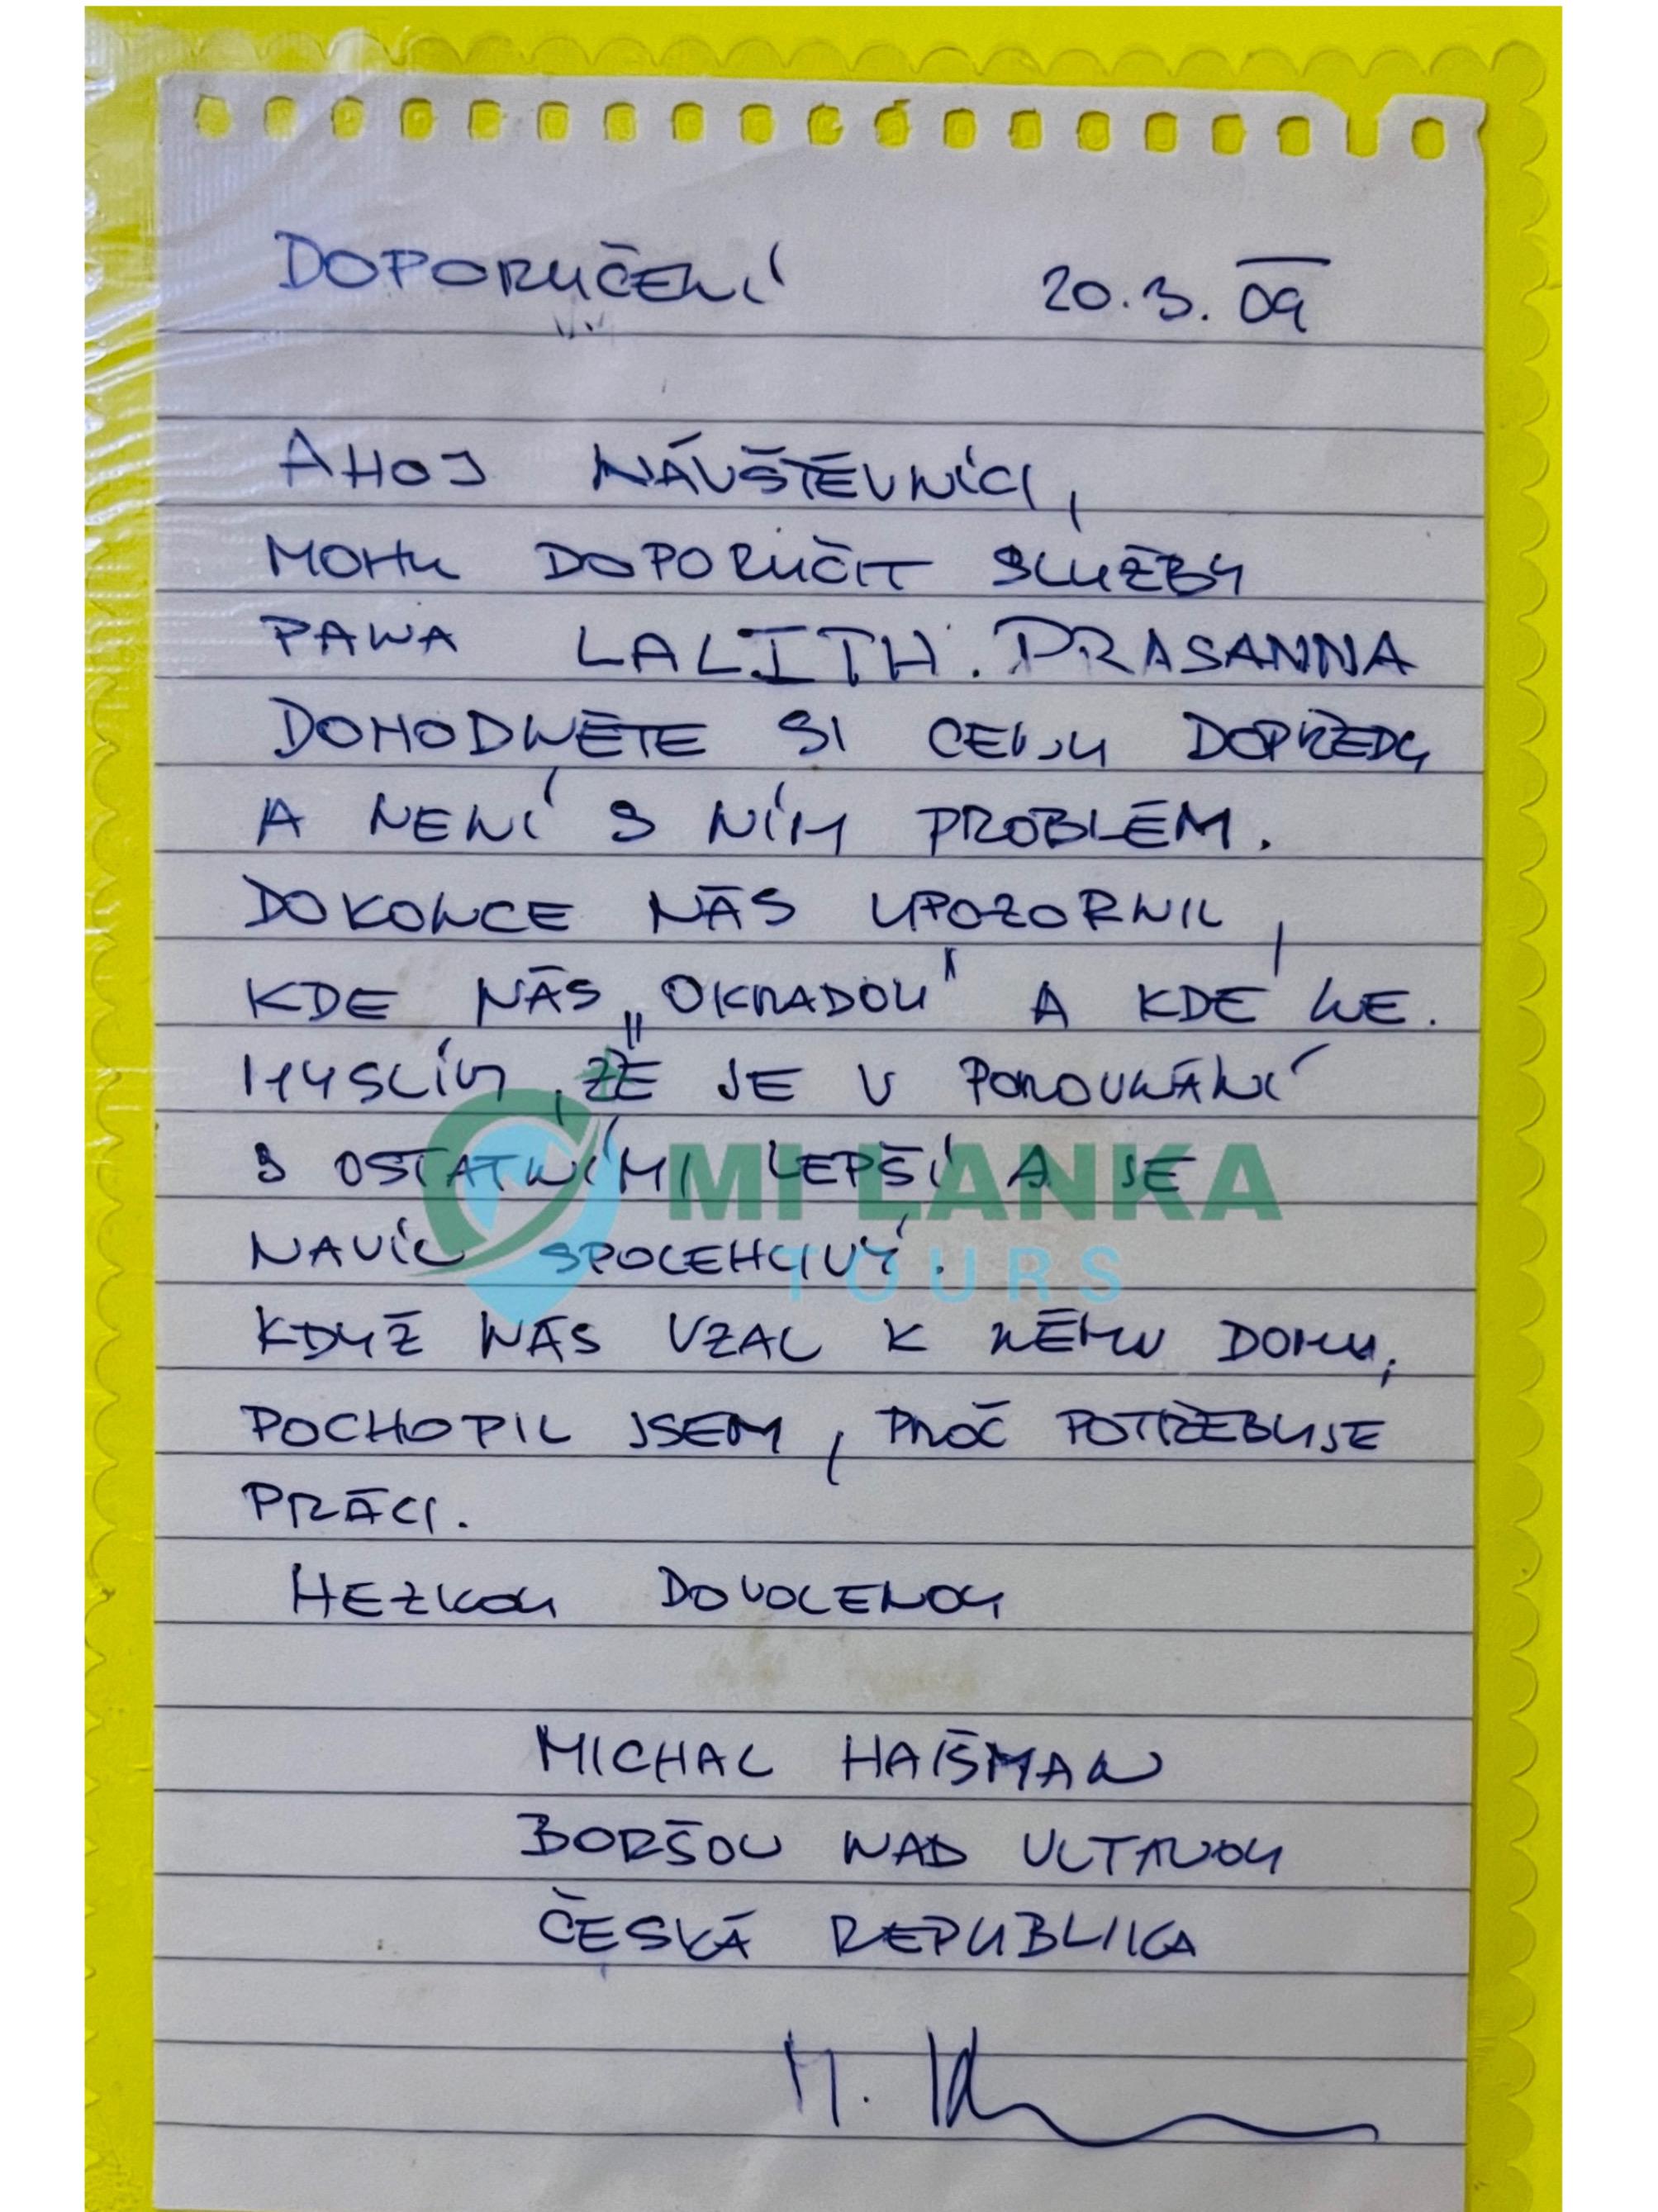 DOPORUČENÍ 20.3.09
AHOJ NÁVŠTĚVNÍCI,
MOHU DOPORUČIT SLUŽBY
PANA LALITH. PRASANNA
DOHODNĚTE SI CENU DOPŘEDU
A NENÍ S NÍM PROBLÉM.
DOKONCE NÁS UPOZORNIL,
KDE NÁS „OKRADOU" A KDE NE.
MYSLÍM, ŽE JE V POROVNÁNÍ
S OSTATNÍMI LEPŠÍ A JE
NAVÍC SPOLEHLIVÝ.
MI LANKA
TOURS
KDYŽ NÁS VZAL K NĚMU DOMU,
POCHOPIL JSEM, PROČ POTŘEBUJE
PRÁCI.
HEZKOU DOVOLENOU
MICHAL HAIŠMAN
BORŠOV NAD VLTAVOU
ČESKÁ REPUBLIKA